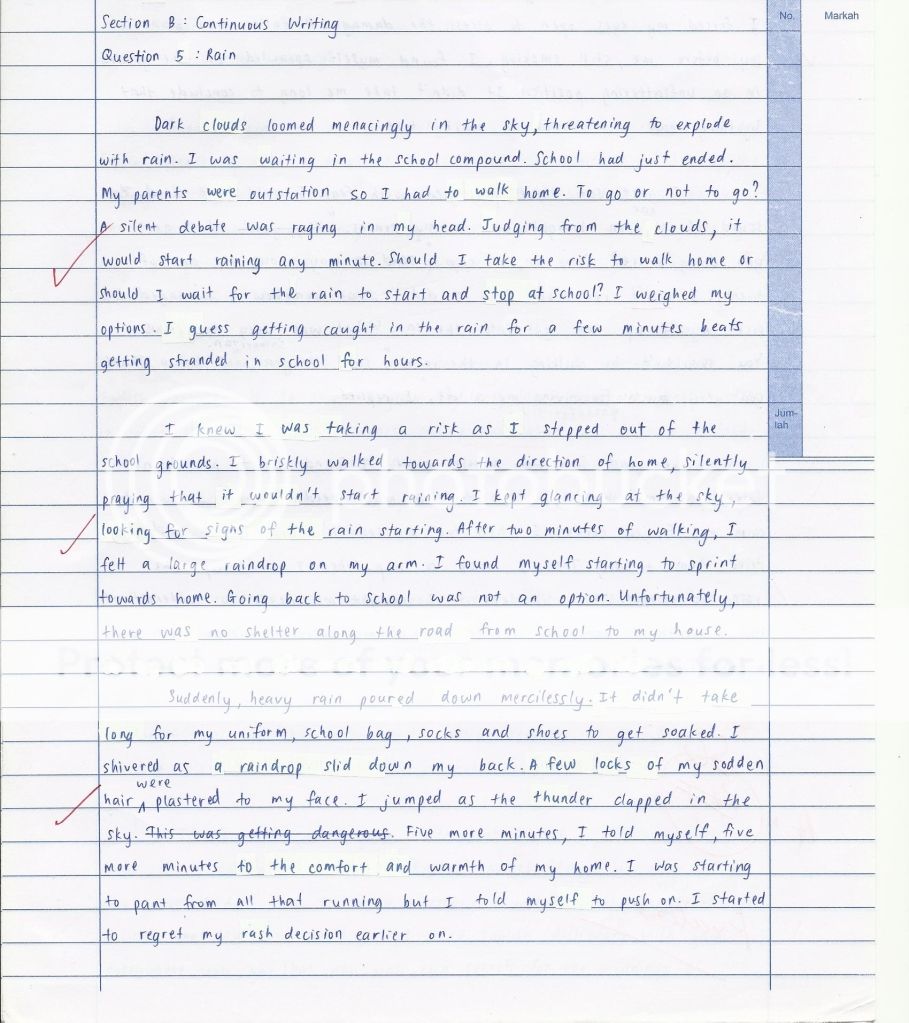 Section B : Continuous Writing
No.
Markah
Question 5 : Rain
Dark clouds loomed menacingly in the sky, threatening to explode
with rain. I was waiting in the school compound. School had just ended.
My parents were outstation so I had to walk home. To go or not to go?
A silent debate was raging in my head. Judging from the clouds, it
would start raining any minute. Should I take the risk to walk home or
should I wait for the rain to start and stop at school? I weighed my
options. I guess getting caught in the rain for a few minutes beats
getting stranded in school for hours.
Jum-
lah
I knew I was taking a risk as I stepped out of the
school grounds. I briskly walked towards the direction of home, silently
praying that it wouldn't start raining. I kept glancing at the sky,
looking for signs of the rain starting. After two minutes of walking, I
felt a large raindrop on my arm. I found myself starting to sprint
towards home. Going back to school was not an option. Unfortunately,
there was no shelter along the road from school to my house.
Suddenly, heavy rain poured down mercilessly. It didn't take
long for my uniform, school bag, socks and shoes to get soaked. I
shivered as a raindrop slid down my back. A few locks of my sodden
were
hair ^ plastered to my face. I jumped as the thunder clapped in the
sky. This was getting dangerous. Five more minutes, I told myself, five
more minutes to the comfort and warmth of my home. I was starting
to pant from all that running but I told myself to push on. I started
to regret my rash decision earlier on.